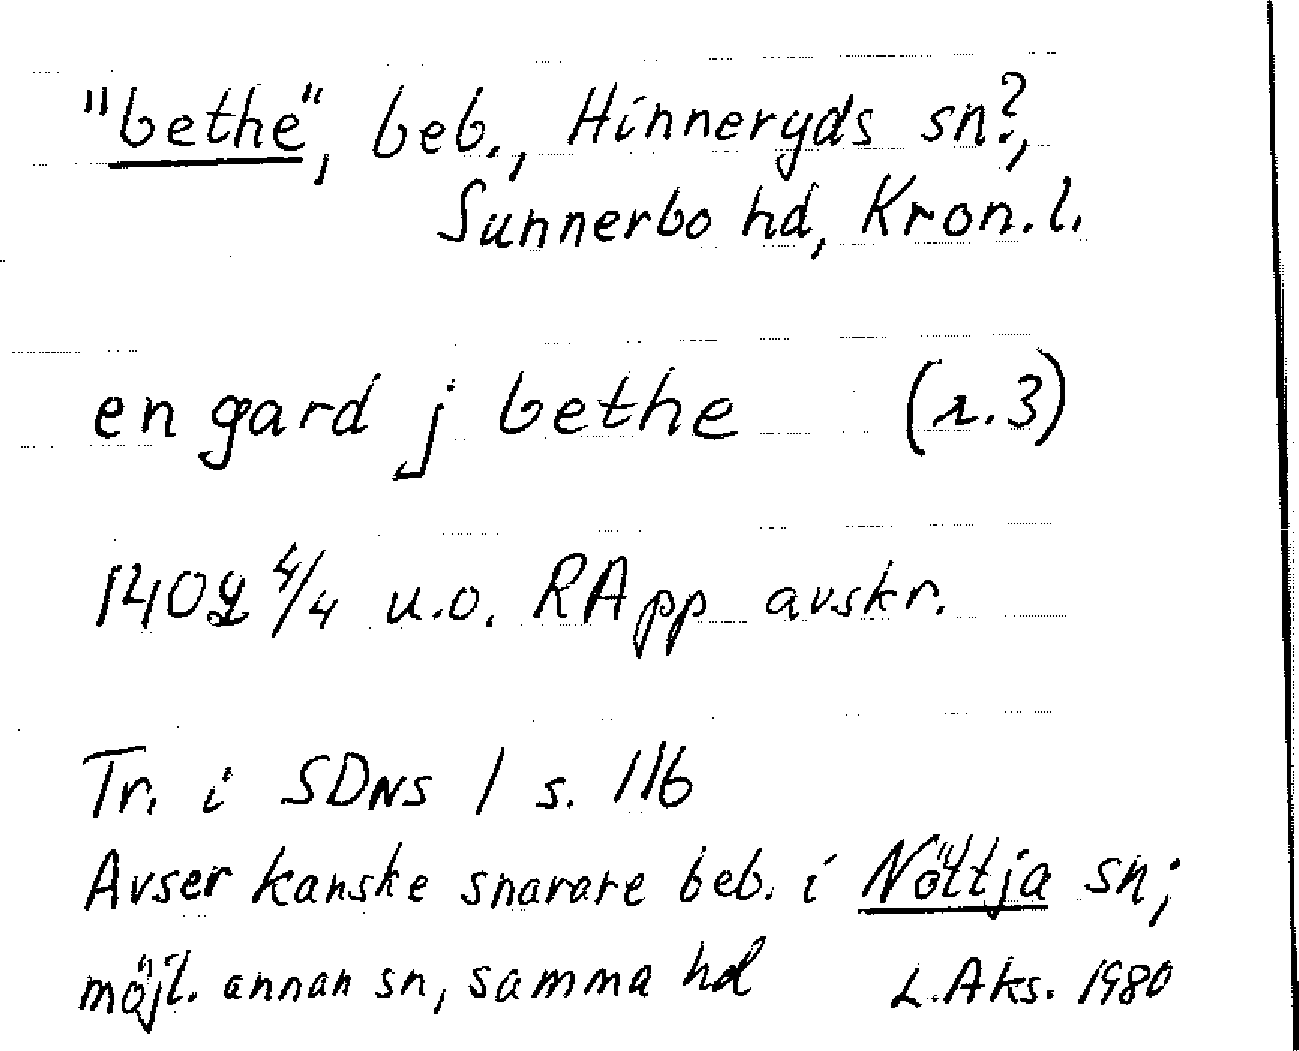 "bethe", beb., Hinneryds sn?,
Sunnerbo hd, Kron. l.
en gard j bethe (r. 3)
1402 4/4 u.o. RApp avskr.
Tr. i SDNS 1 s. 116
Avser kanske snarare beb. i Nöttja sn;
möjl. annan sn, samma hd L.Aks. 1980